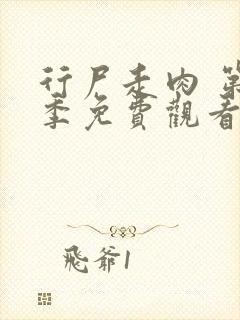 行尸走肉 第
季免費觀看
飛爺1